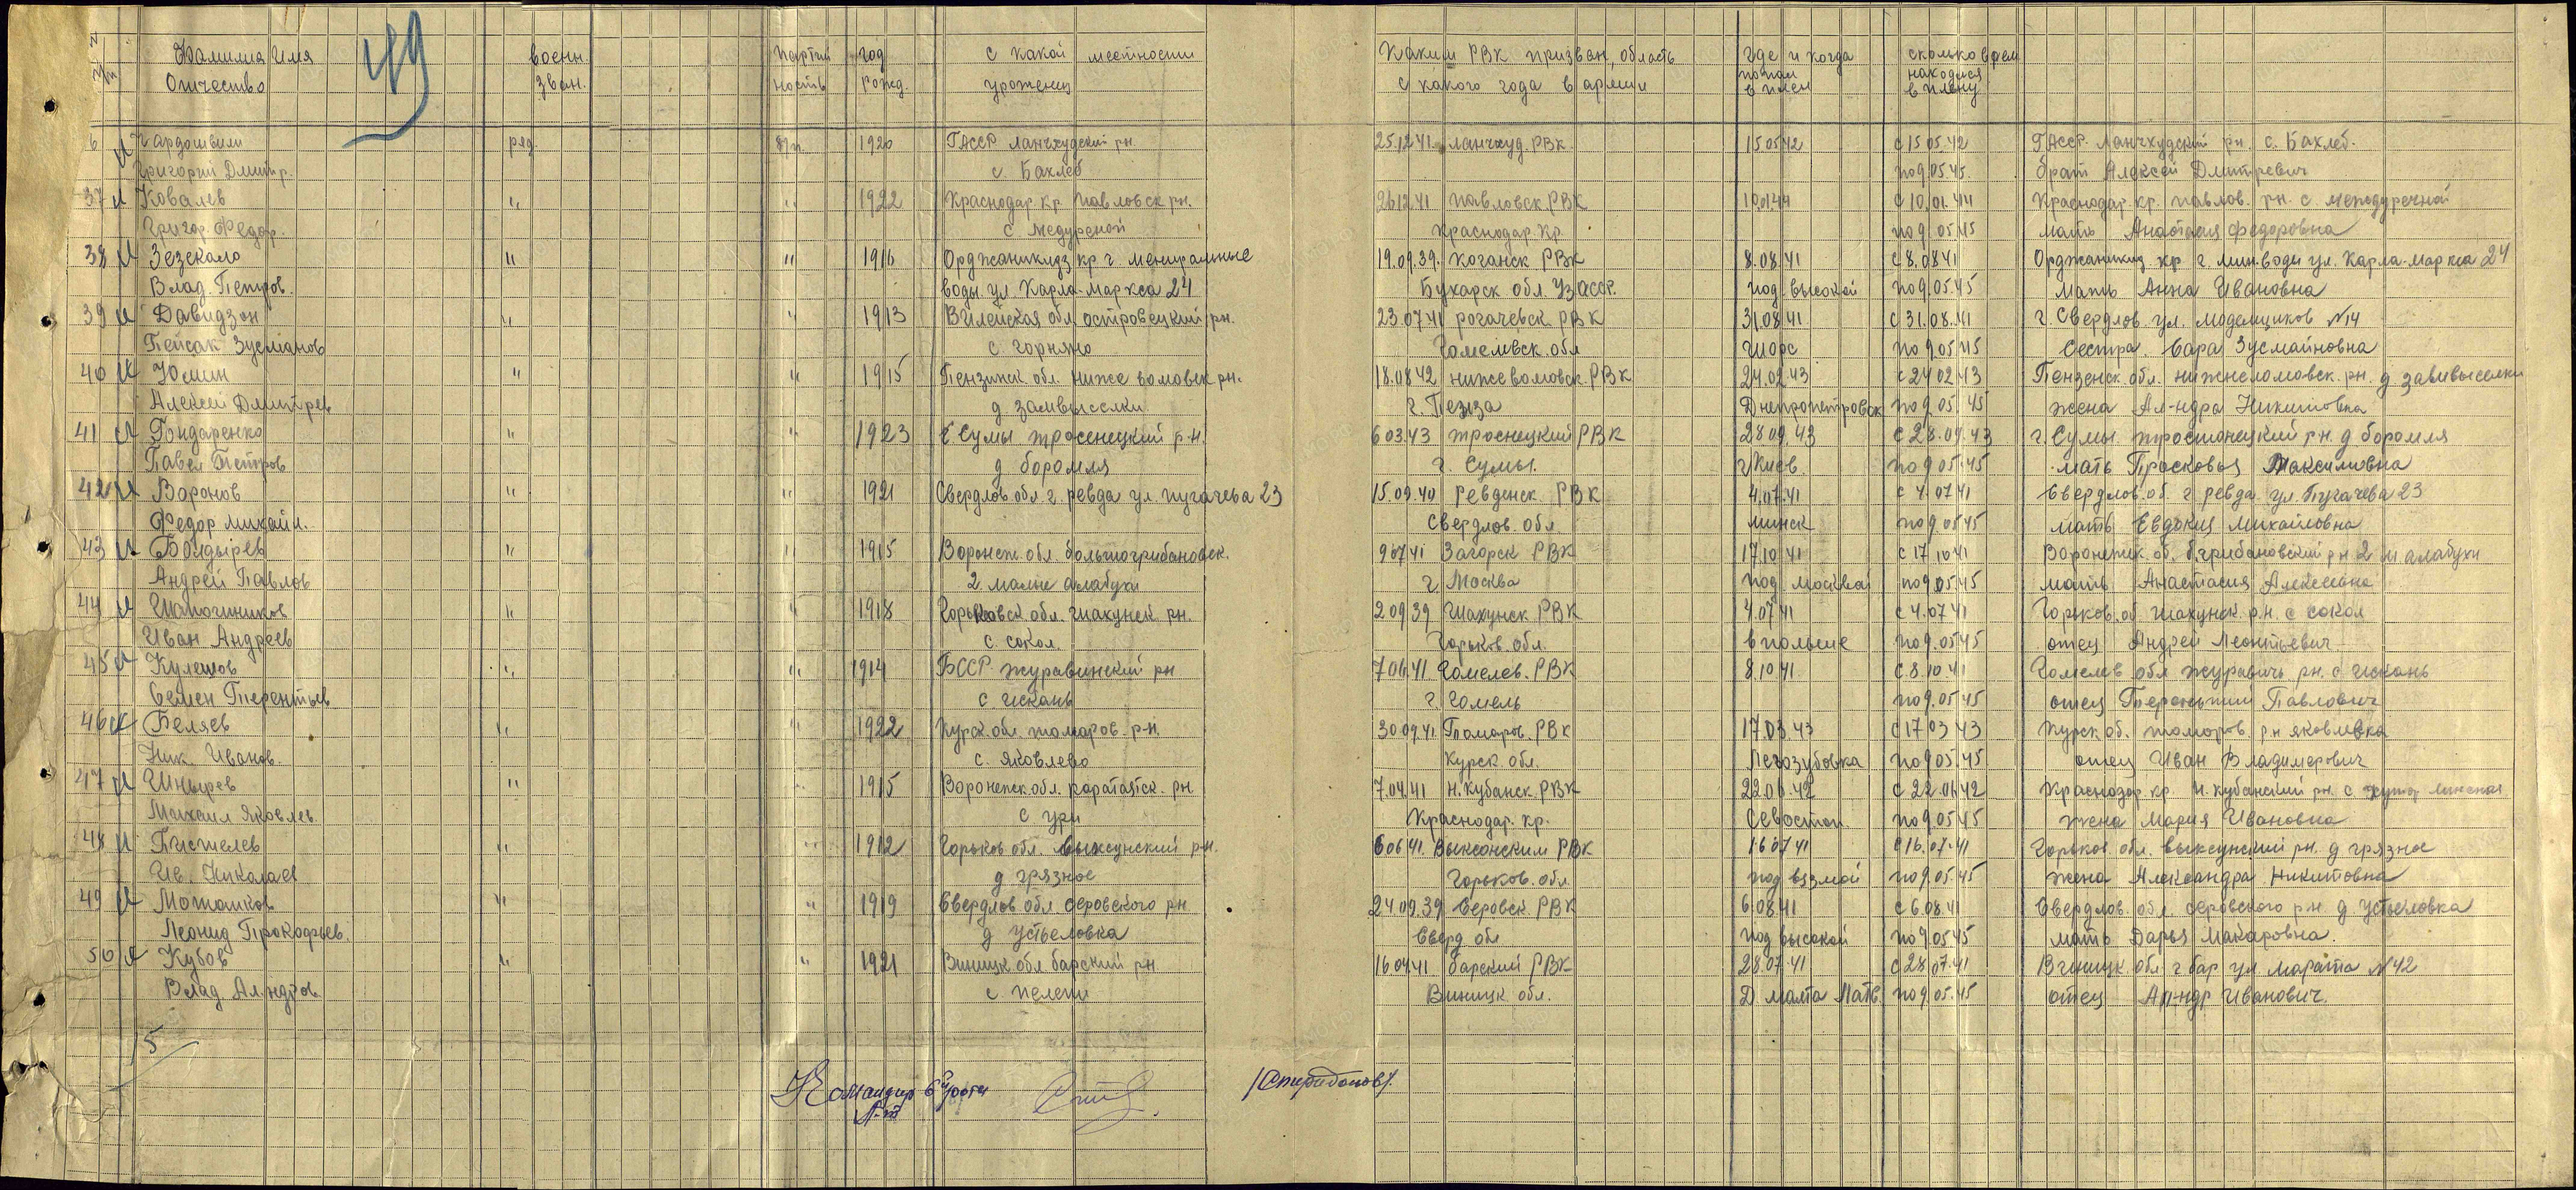 49
N п/п Фамилия Имя воен. партий год с какой местности Каким РВК призван, область где и когда сколько врем
Отчество зван. ность рожд. уроженец с какого года в армии попал в плен находился в плену
6 Чардошвили ряд. б/п. 1920 ГАССР Ланчхудский рн. 25.12.41. Ланчхуд. РВК. 15.05.42 с 15.05.42 ГАССР. Ланчхудский рн. с. Бахлеб.
Григорий Дмитр. с Бахлеб по 9.05.45. брат Алексей Дмитревич
37 Ковалев " " 1922 Краснодар. кр. Павловск рн. 26.12.41 Павловск. РВК 10.01.44 с 10.01.44 Краснодар. кр. Павлов. рн. с. междуречной
Григор. Федор. с. Медуреной Краснодар. кр. по 9.05.45 мать Анастасия Федоровна
38 Зезекало " " 1916 Орджаникидз кр г. мениральные 19.09.39. Коганск РВК 8.08.41 с 8.08.41 Орджаникид. кр г. мин.воды ул. Карла-Маркса 24
Влад. Петров. воды. ул. Карла-Маркса 24 Бухарск обл. УзАССР. под высокой по 9.05.45 мать Анна Ивановна
39 Давидзон " " 1913 Вилейская обл. островецкий рн. 23.07.41 рогачевск РВК 31.08.41 с 31.08.41 г. Свердлов. ул. моделщиков №14
Пейсак Зусманов с горняно Гомелвск. обл Щорс по 9.05.45 Сестра. Сара Зусмайновна
40 Юмин " " 1915 Пензинск. обл. ниже ломовск рн. 18.08.42 нижеломовск. РВК 24.02.43 с 24.02.43 Пензенск. обл. нижнеломовск. рн. д завивыселки
Алексей Дмитрев д замвыселки г. Пенза Днепропетровск по 9.05.45 жена Ал-ндра Никитовна
41 Гондаренко " " 1923 г Сумы тросенецкий р-н. 6.03.43 троснецкий РВК 28.09.43 с 28.09.43 г. Сумы тростонецкий рн. д боромля
Павел Петров д боромля г. Сумы. г Киев. по 9.05.45 мать Прасковья Максимовна
42 Воронов " " 1921 Свердлов обл. г. ревда ул. пугачева 23 15.09.40 Ревденск. РВК 4.07.41 с 4.07.41 Свердлов. об. г ревда ул. Пугачева 23
Федор михайл. Свердлов. обл минск по 9.05.45 мать Евдокия Михайловна
43 Болдырев " " 1915 Воронеж. обл. большегрибановск. 9.07.41 Загорск РВК 17.10.41 с 17.10.41 Воронежск. об. б.грибановский рн 2 м алабухи
Андрей Павлов 2. малые алабухи г. Москва под москвай по 9.05.45 мать Анастасия Алексевна
44 Шапошников " " 1918 Горьковск. обл. шахунск рн. 2.09.39 Шахунск РВК 4.07.41 с 4.07.41 Горьков. об. шахунск. р.н. с сокол
Иван Андреев с. сокол. Горьков. обл. в польше по 9.05.45 отец Андрей Леонтьевич
45 Кулешов " " 1914 БССР журавинский рн 7.06.41 Гомелев. РВК 8.10.41 с 8.10.41 Гомелев обл журавичь рн. с Искань
Семен Терентьев с Искань г. Гомель по 9.05.45 отец Терентий Павлович
46 Беляев " " 1922 Курск. обл. томаров. р-н. 30.09.41. Томаров. РВК 17.03.43 с 17.03.43 Курск об. томоров. рн яковлевка
Ник. Иванов. с. Яковлево Курск. обл. Легозубовка по 9.05.45 отец Иван Владимерович
47 Шнырев " " 1915 Воронежск. обл. каратаятск. рн 7.04.41 Н. Кубанск. РВК 22.06.42 с 22.06.42 Краснодар. кр. Н. кубанский рн. с. хутор
Михаил Яковлев с ури Краснодар. кр. Севостоп. по 9.05.45 жена Мария Ивановна
48 Пистелев " " 1912 Горьков обл. выксунский р-н. 6.06.41. Выксонским РВК 16.07.41 с 16.07.41 Горьков. обл. выксунский рн. д грязное
Ив. Николаев д грязное Горьков. обл. под вязмой по 9.05.45 жена Александра Никитовна
49 Моташков " " 1919 Свердлов обл. серовского рн 24.09.39 Серовск. РВК 6.08.41 с 6.08.41 Свердлов. обл. серовского р.н. д. Устьеловка
Леонид Прокофьев. д Устьеловка Сверд обл под высокой по 9.05.45 мать Дарья Макаровна.
50 Кубов " " 1921 Виницк обл барский рн 16.04.41 барский РВК 28.07.41 с 28.07.41 Виницк. обл г бар ул марата №42
Влад. Ал.ндров с. пелени Виницк. обл. Д малта Латв. по 9.05.45 отец Ал-ндр Иванович.
15
Командир 6й роты /Спиридонов/.
Л-т